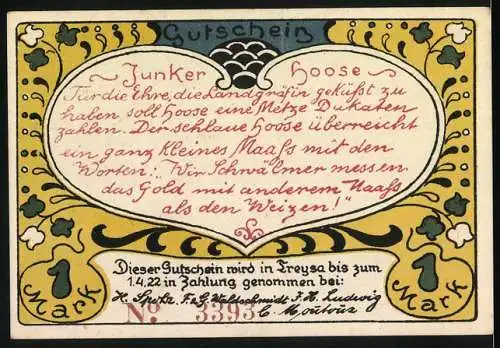 Gutschein
Junker Hoose
Für die Ehre, die Landgräfin geküßt zu
haben, soll Hoose eine Metze Dukaten
zahlen. Der schlaue Hoose überreicht
ein ganz kleines Maaß mit den
Worten: "Wir Schwälmer messen
das Gold mit anderem Maaß
als den Weizen!"
Dieser Gutschein wird in Treysa bis zum
1.4.22 in Zahlung genommen bei:
H. Spohr. F. & G. Waldschmidt J. H. Ludwig
No. 3393 C. Moutoux
1 Mark
1 Mark